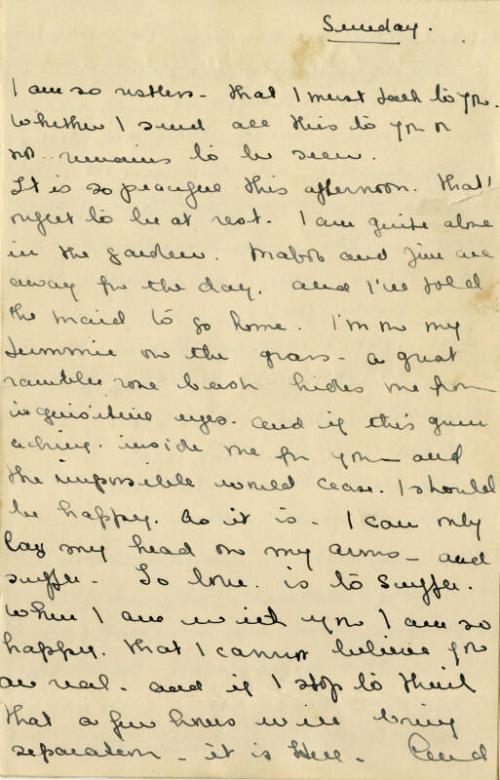 Sunday.
I am so restless - that I must talk to you.
Whether I send all this to you or
not.. remains to be seen.
It is so peaceful this afternoon. that I
ought to be at rest. I am quite alone
in the garden. Mabs and Jim are
away for the day. and I've told
the maid to go home. I'm on my
tummie on the grass - a great
rambler rose bush hides me from
inquisitive eyes. and if this
aching. inside me for you - and
the impossible would cease. I should
be happy. As it is - I can only
lay my head on my arms - and
suffer - To love. is to suffer.
When I am with you I am so
happy. that I cannot believe you
are real. and if I stop to think
that a few hours will bring
separation - it is Hell - And